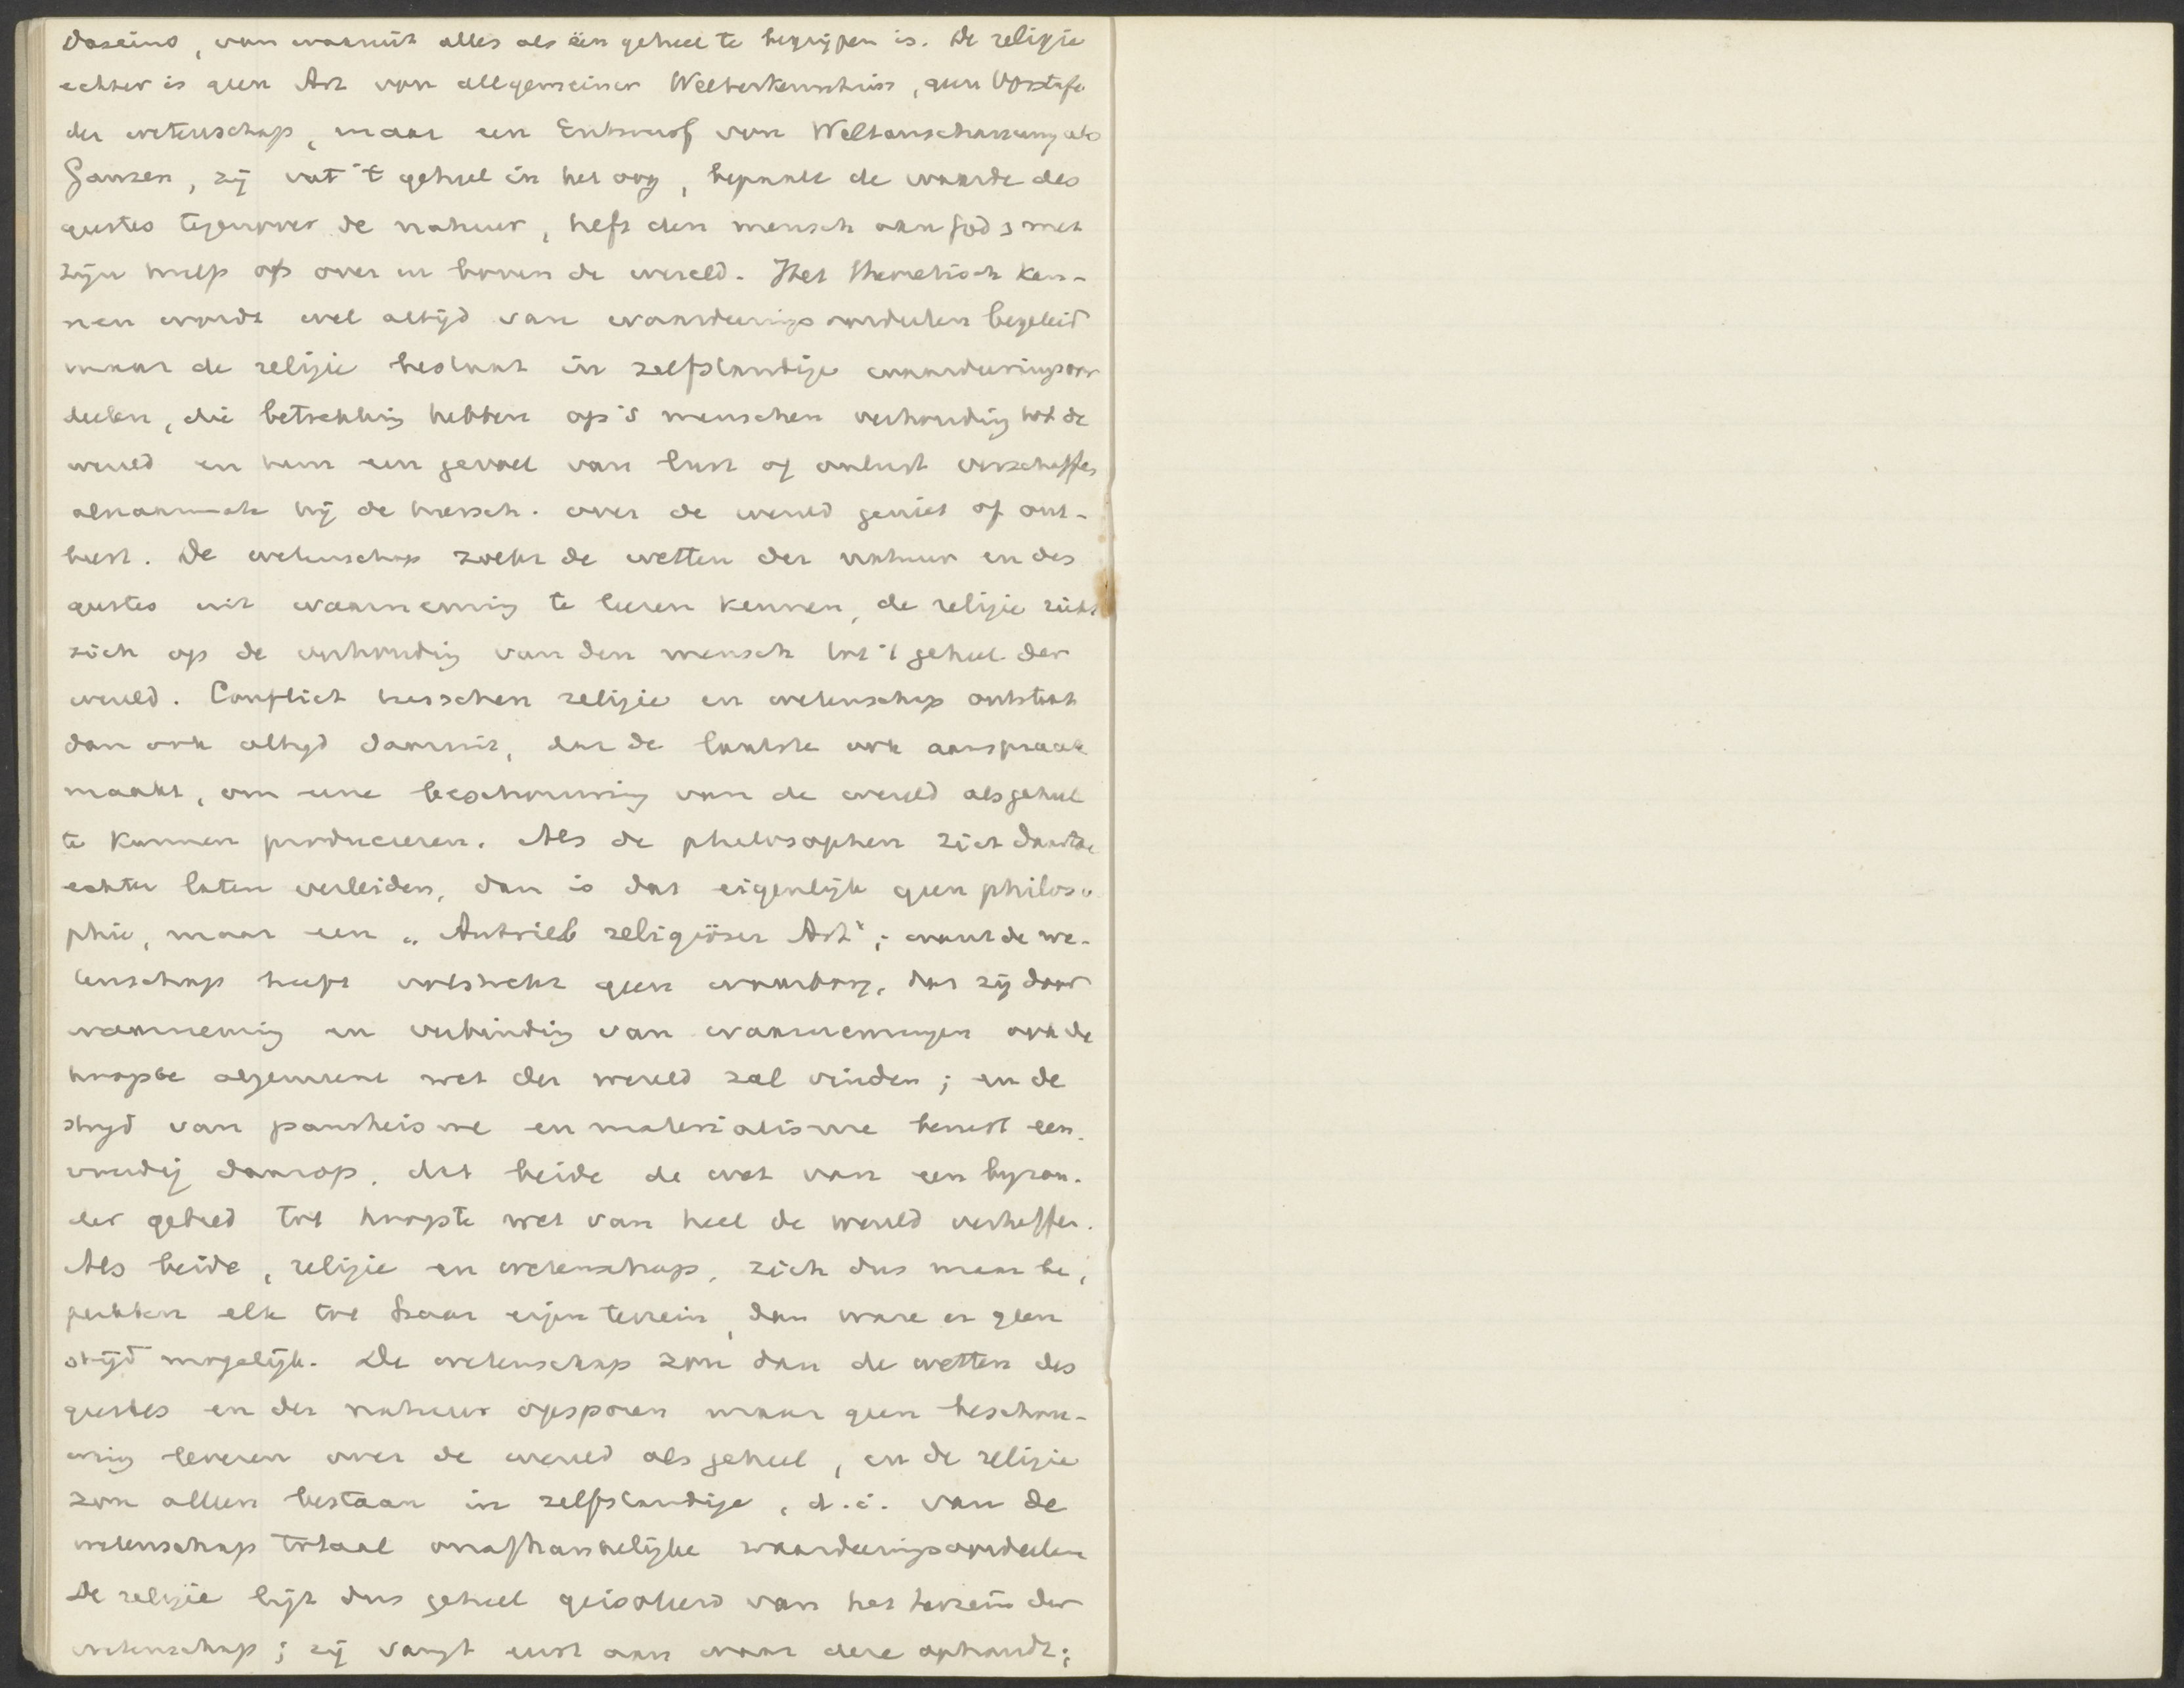 Daseins, van waaruit alles als één geheel te begrijpen is. De religie
echter is geen Art von allgemeiner Welterkenntniss, geen Vorstufe
der wetenschap, maar een Entwurf von Weltanschauung als
Ganzen, zij vat 't geheel in het oog, bepaalt de waarde des
geestes tegenover de natuur, heft den mensch aan God & met
zijn hulp op over en boven de wereld. Het theoretisch ken-
nen wordt wel altijd van waardeeringsoordeelen begeleid
maar de religie bestaat in zelfstandige waardeeringsoor
deelen, die betrekking hebben op 's menschen verhouding tot de
wereld en hem een gevoel van lust of onlust verschaffen
alnaarmate hij de heersch. over de wereld geniet of ont-
beert. De wetenschap zoekt de wetten der natuur en des
geestes uit waarneming te leeren kennen, de religie richt
zich op de verhouding van den mensch tot 't geheel der
wereld. Conflict tusschen religie en wetenschap ontstaat
dan ook altijd daaruit, dat de laatste ook aanspraak
maakt, om eene beschouwing van de wereld als geheel
te kunnen produceeren. Als de philosophen zich daartoe
echter laten verleiden, dan is dat eigenlijk geen philoso
phie, maar een „Antrieb religiöser Art"; want de we-
tenschap heeft volstrekt geen waarborg, dat zij door
waarneming en verbinding van waarnemingen ook de
hoogste algemeene wet der wereld zal vinden; en de
strijd van pantheisme en materialisme berust een-
voudig daarop, dat beide de wet van een byzon-
der gebied tot hoogste wet van heel de wereld verheffen.
Als beide, religie en wetenschap, zich dus maar be-
perkten elk tot haar eigen terrein, dan ware er geen
strijd mogelijk. De wetenschap zou dan de wetten des
geestes en der natuur opsporen maar geen beschou-
wing leveren over de wereld als geheel, en de religie
zou alleen bestaan in zelfstandige, d.i. van de
wetenschap totaal onafhankelijke waardeeringsoordeelen
De religie ligt dus geheel geisoleerd van het terrein der
wetenschap; zij vangt eerst aan waar deze ophoudt;